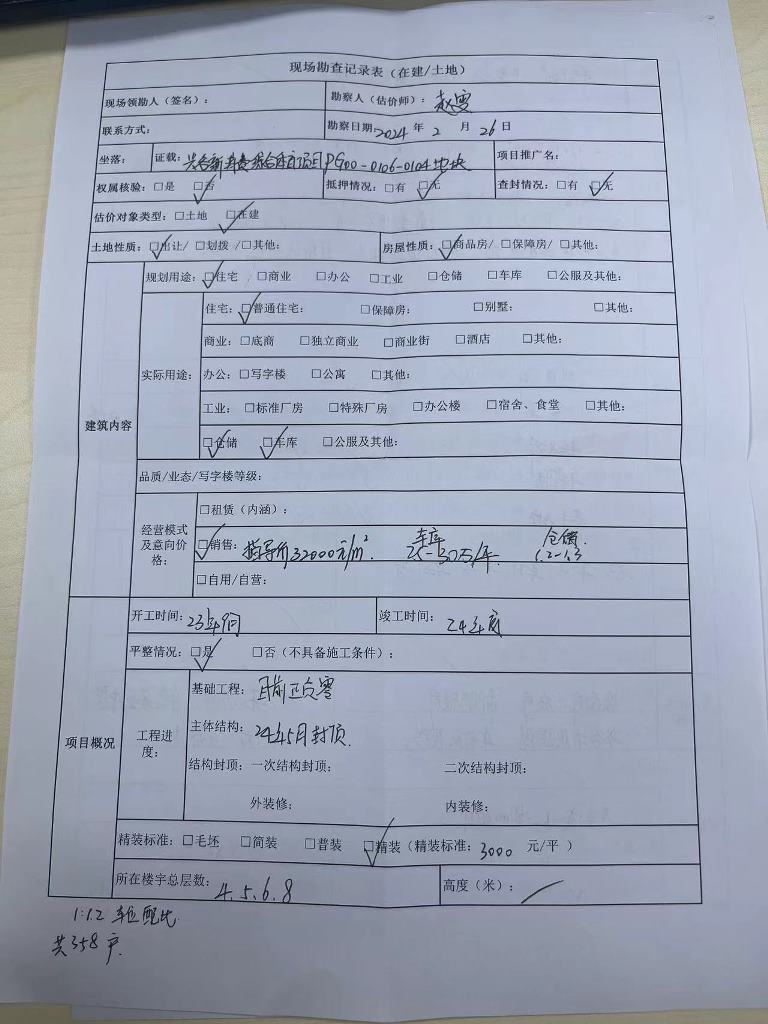 现场勘查记录表（在建/土地）
现场领勘人（签名）： 勘察人（估价师）：赵雯
联系方式： 勘察日期：2024 年 2 月 26 日
坐落： 证载： PG00-0106-0104地块 项目推广名：
权属核验：□是 ☑否 抵押情况：□有 ☑无 查封情况：□有 ☑无
估价对象类型：□土地 ☑在建
土地性质：☑出让/ □划拨 /□其他： 房屋性质：☑商品房/ □保障房/ □其他：
建筑内容
规划用途：☑住宅 □商业 □办公 □工业 □仓储 □车库 □公服及其他：
实际用途：
住宅：☑普通住宅： □保障房： □别墅： □其他：
商业：□底商 □独立商业 □商业街 □酒店 □其他：
办公：□写字楼 □公寓 □其他：
工业：□标准厂房 □特殊厂房 □办公楼 □宿舍、食堂 □其他：
☑仓储 ☑车库 □公服及其他：
品质/业态/写字楼等级：
经营模式及意向价格：
□租赁（内涵）：
☑销售：指导价32000元/m². 车库 25-30万/个. 仓储. 1.2-1.3
□自用/自营：
项目概况
开工时间：23年 竣工时间：24年底
平整情况：☑是 □否（不具备施工条件）：
工程进度：
基础工程：目前正负零
主体结构：24年5月封顶.
结构封顶：一次结构封顶： 二次结构封顶：
外装修： 内装修：
精装标准：□毛坯 □简装 □普装 ☑精装（精装标准：3000 元/平 ）
所在楼宇总层数：4.5.6.8 高度（米）：/
1:1.2 车位配比
共358户.